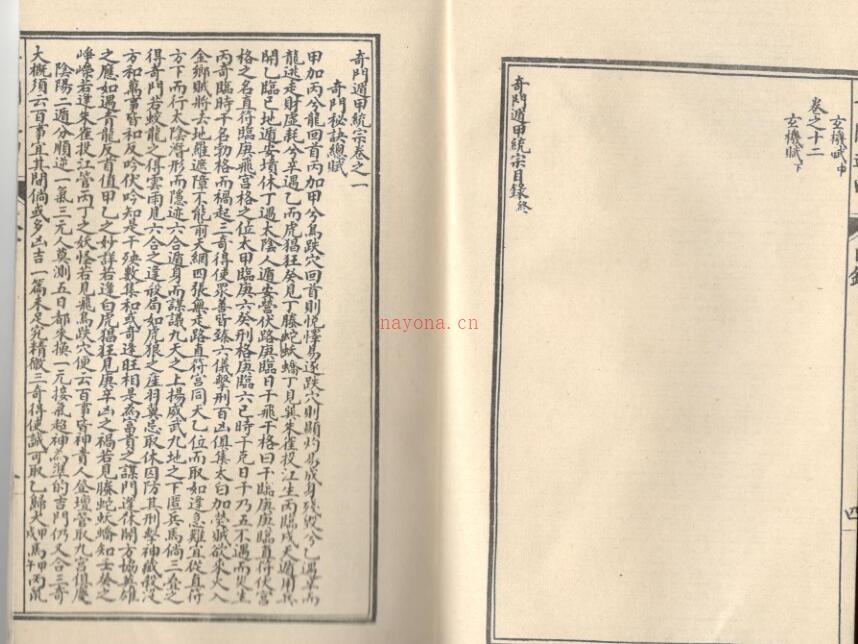 玄機賦中
卷之十二
玄機賦下
奇門遁甲統宗目錄終
四
奇門遁甲統宗卷之一
奇門秘訣總賦
甲加丙兮龍回首丙加甲兮鳥跌穴回首則悅懌易遂跌穴則顯灼易成身殘毀兮乙遇辛而
龍逃走財虛耗兮辛遇乙而虎猖狂癸見丁騰蛇妖矯丁見癸朱雀投江生丙臨戊天遁用兵
開乙臨己地遁安墳休丁遇太陰人遁安營伏路庚臨日干飛干格曰干臨庚庚臨直符伏宮
格之名直符臨庚飛宮格之位太甲臨庚六癸刑格庚臨六己時干克日干乃五不遇而災生
丙奇臨時干名勃格而禍起三奇得使眾善皆臻六儀擊刑百凶俱集太白加熒賊欲來火入
金鄉賊將去地羅遮障不能前天網四張無走路直符宮同天乙位而取如逢急難宜從直符
方下而行太陰潛形而隱迹六合遁身而謀議九天之上揚威武九地之下匿兵馬倘三奇之
得奇門若蛟龍之得雲雨見六合之逢殺局如虎狼之產羽翼忌取休囚防其刑擊神藏殺沒
方和萬事皆和反吟伏吟知是干殃數集和或奇逢旺相是為富貴之謀門逢休開方協英雄
之應如遇青龍反首值甲乙之妙詳若逢白虎猖狂見庚辛凶之禍若見騰蛇妖矯知壬癸之
崢嶸若逢朱雀投江管丙丁之妖怪若見飛鳥跌穴便云百事皆神貴人登壇管取九宮俱慶
陰陽二遁分順逆一氣三元人莫測五日都來換一元接氣超神為準的吉門仍又合三奇
大概須云百事宜其間倘或多凶吉一篇未足究精微三奇得使誠可取乙歸犬甲馬午丙鼠
nayona.cn